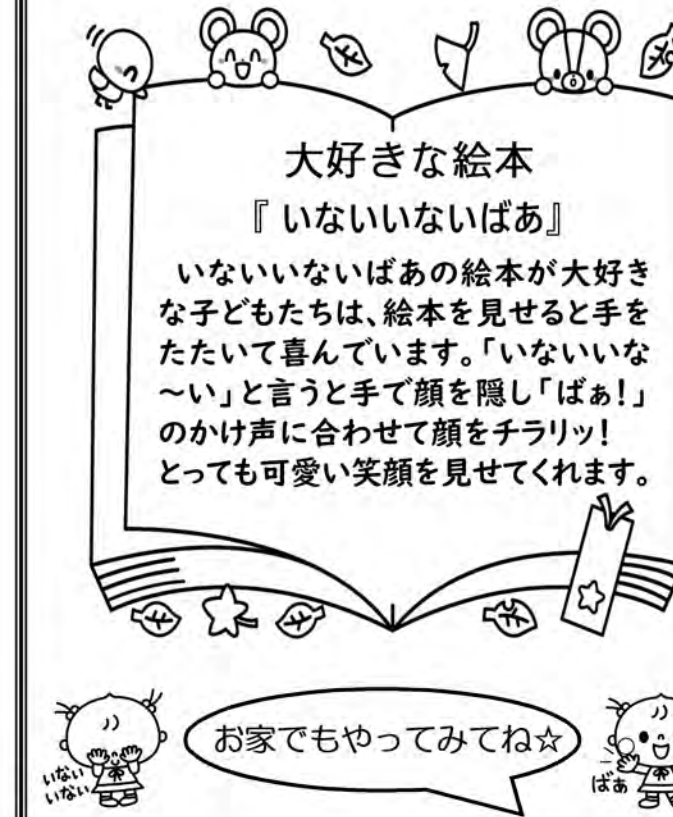 大好きな絵本
『いないいないばあ』
いないいないばあの絵本が大好き
な子どもたちは、絵本を見せると手を
たたいて喜んでいます。「いないいな
～い」と言うと手で顔を隠し「ばぁ!」
のかけ声に合わせて顔をチラリッ!
とっても可愛い笑顔を見せてくれます。
お家でもやってみてね☆
いない
いない
ばぁ